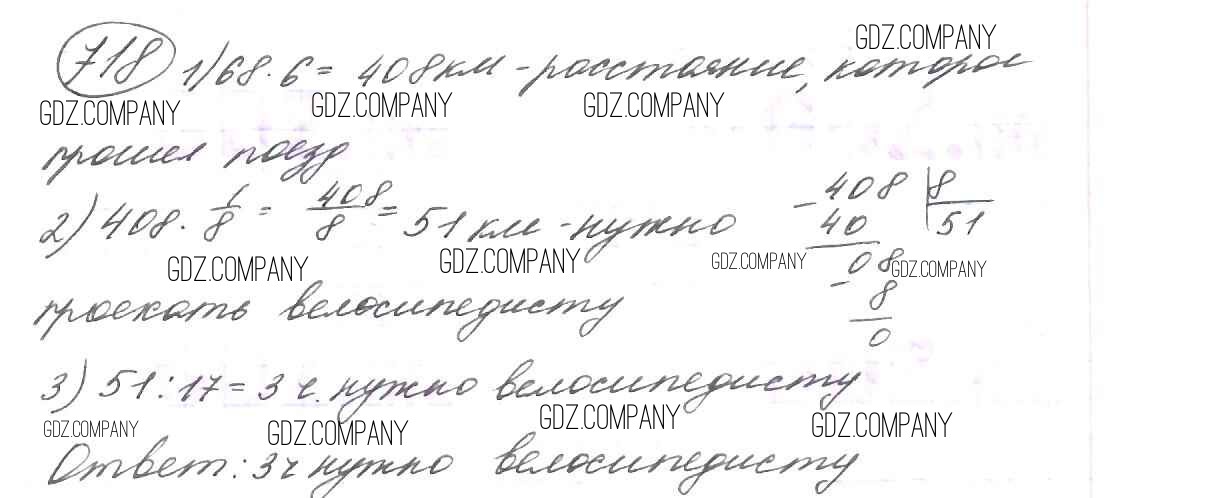 GDZ.COMPANY
718 1) 68 · 6 = 408 км - расстояние, которое
GDZ.COMPANY GDZ.COMPANY GDZ.COMPANY
прошел поезд
2) 408 · 1/8 = 408/8 = 51 км - нужно
GDZ.COMPANY GDZ.COMPANY
проехать велосипедисту
- 408 | 8
40 | 51
08
GDZ.COMPANY GDZ.COMPANY
- 8
0
3) 51 : 17 = 3 ч. нужно велосипедисту
GDZ.COMPANY GDZ.COMPANY GDZ.COMPANY GDZ.COMPANY
Ответ: 3 ч нужно велосипедисту